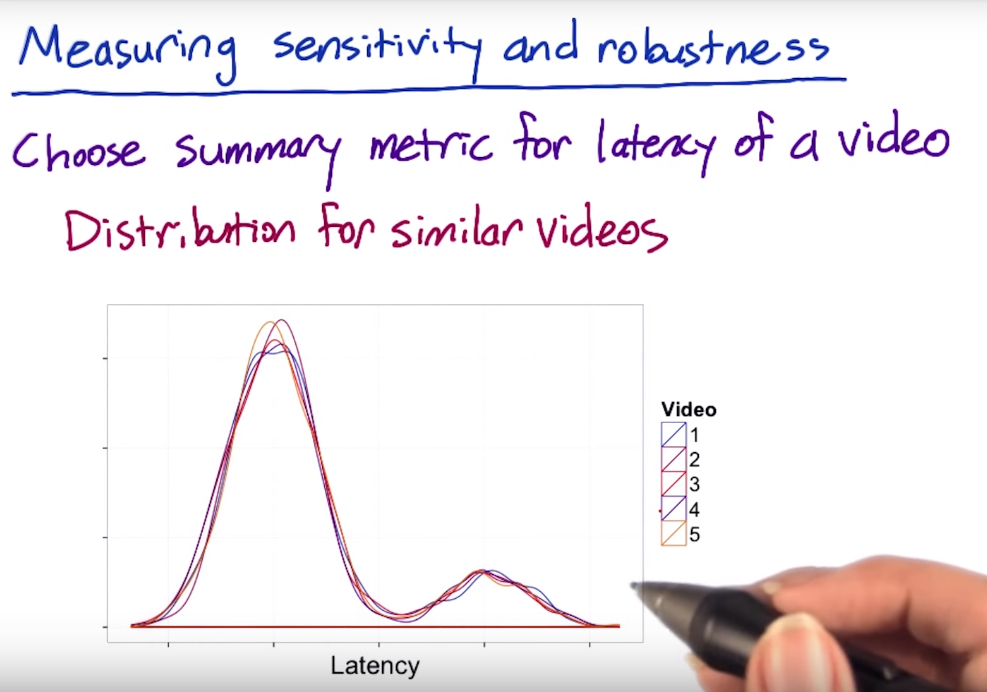 Measuring sensitivity and robustness
Choose summary metric for latency of a video
Distribution for similar videos
Video
1
2
3
4
5
Latency